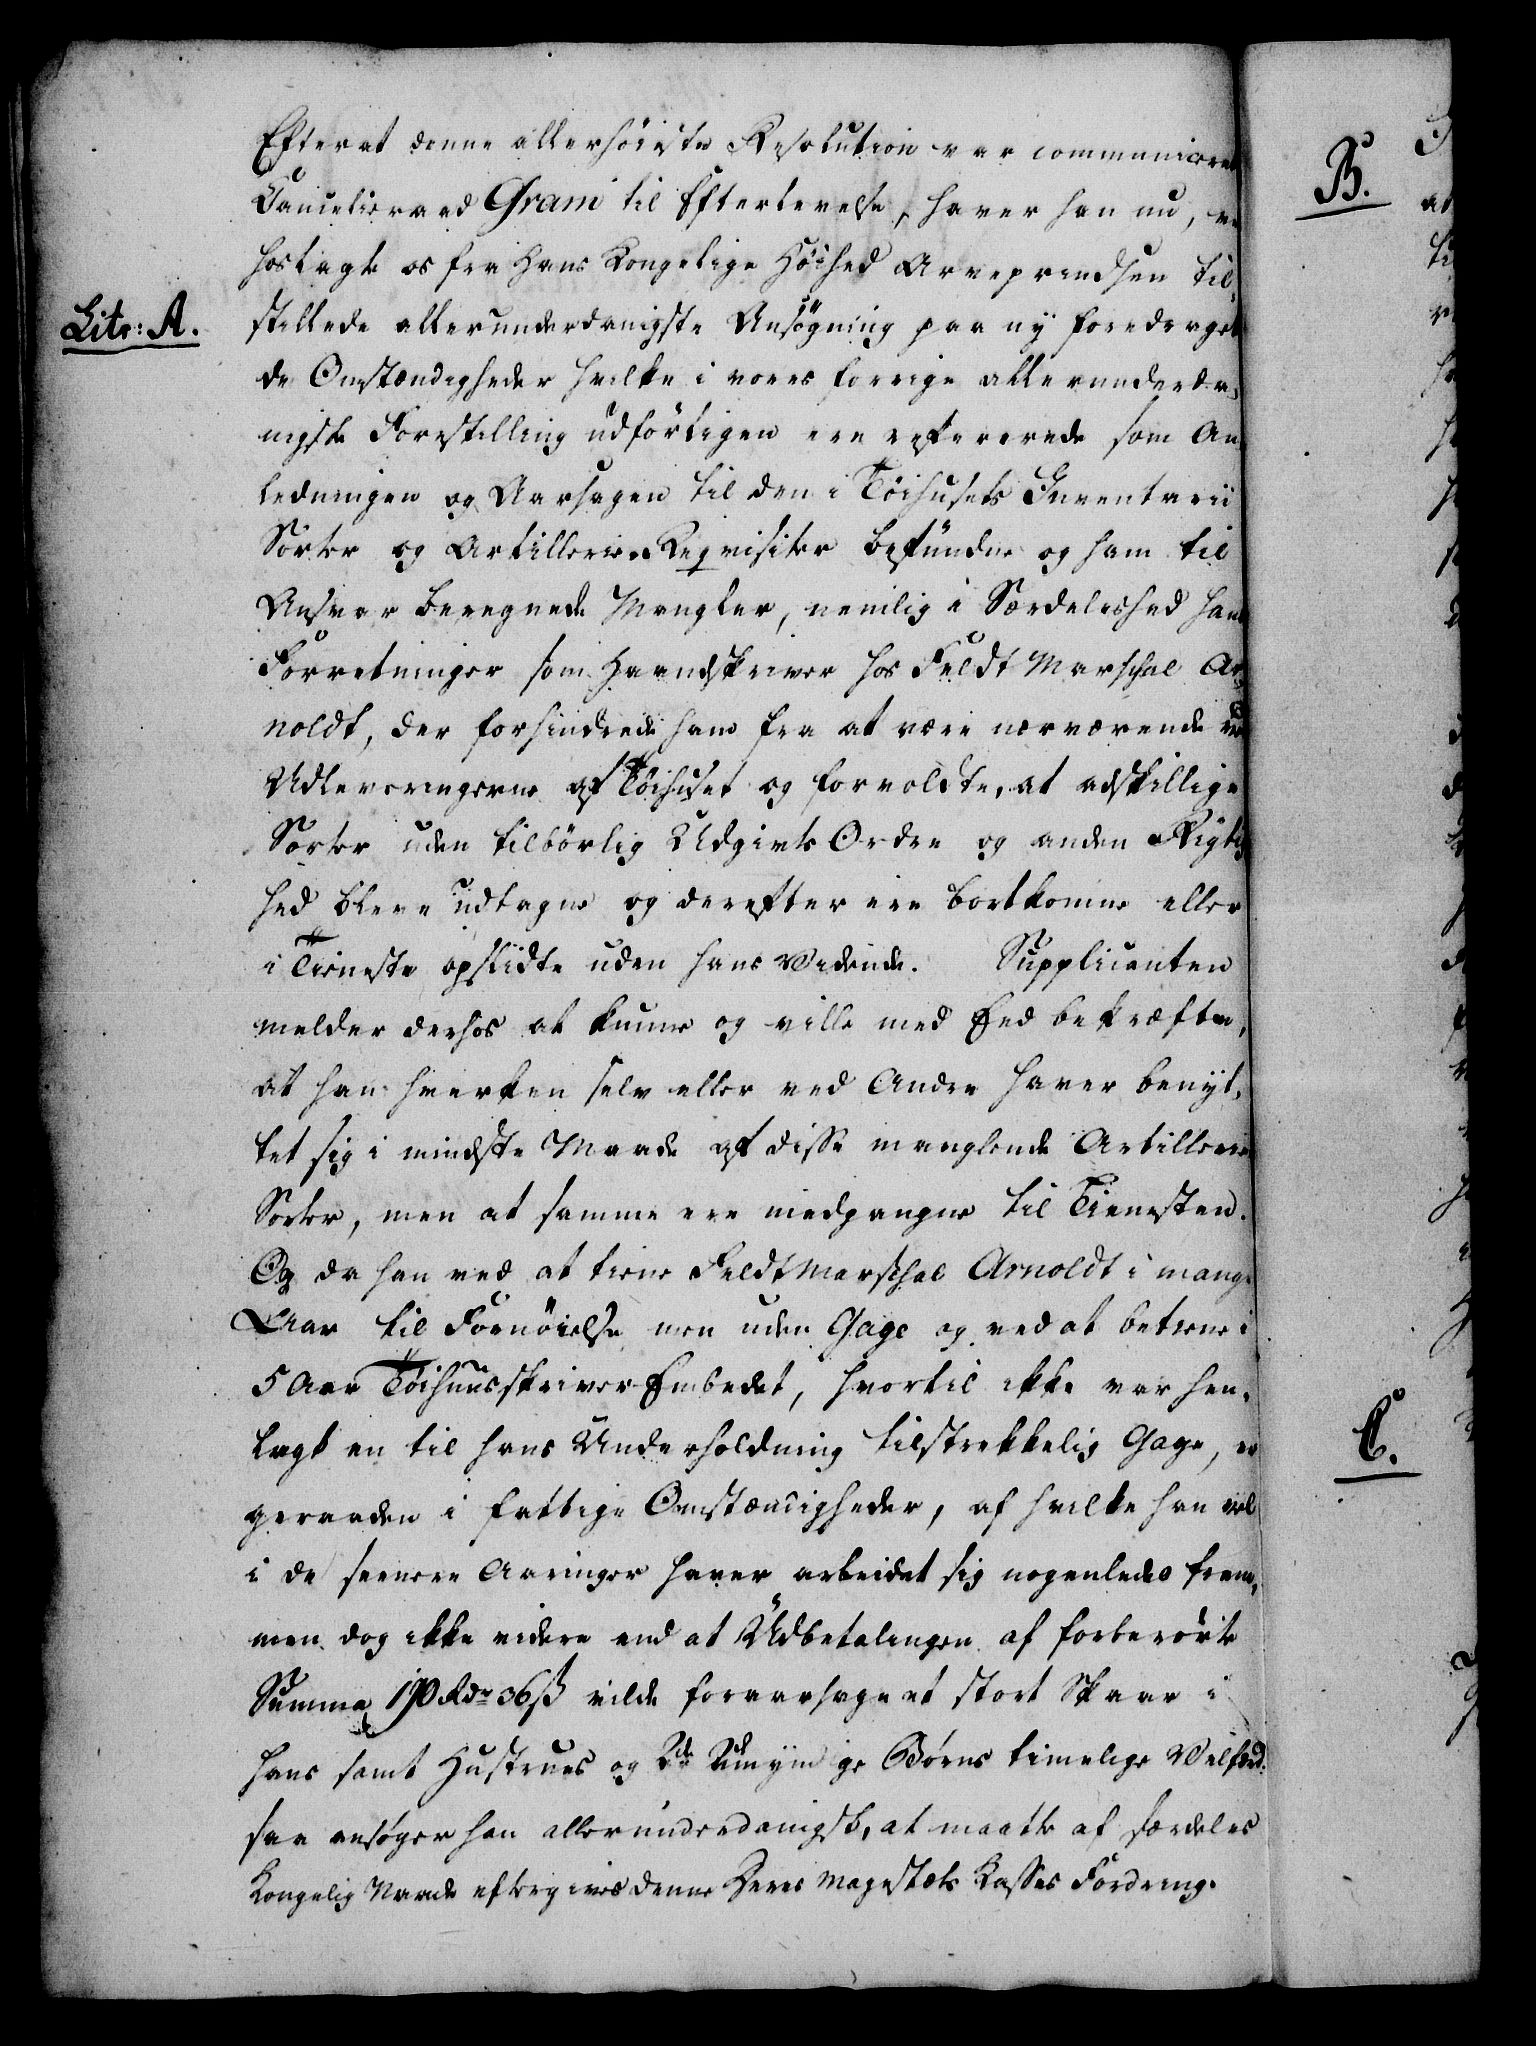 Efterat denne allerhöieste Resolution var communiceret
Cancelieraad Gram til Efterlevelse, haver han nu, ved
hoslagte os fra Hans Kongelige Höihed Arveprindsen til,
Litr: A.
stillede allerunderdanigste Ansögning paa ny foredraget
de Omstændigheder hvilke i vores forrige allerunderda,
nigste Forestilling udförligen ere refererede som An
ledningen og Aarsagen til den i Töihusets Inventarii
Sorter og Artillerie Reqvisiter befundne og ham til
Ansvar beregnede Mangler, nemlig i Særdeleshed hans
Forretninger som Haandskriver hos Feldt Marschal Ar,
noldt, der forhindrede ham fra at være nærværende ved
Udleveringerne af Töihuset og forvoldte, at adskillige
Sorter uden tilbörlig Udgivts Ordre og anden Rigtig
hed bleve udtagne og derefter ere bortkomne eller
i Tieneste opslidte uden hans Vidende. Supplicanten
melder derhos at kunne og ville med Eed bekræfte,
at han hverken selv eller ved Andre haver benyt,
tet sig i mindste Maade af disse manglende Artillerie
Sorter, men at samme ere medgangne til Tienesten.
Og da han ved at tiene Feldtmarschal Arnoldt i mange
Aar til Fornöielse men uden Gage og ved at betiene i
5 Aar Töihuusskriver Embedet, hvortil ikke var hen,
lagt en til hans Underholdning tilstrekkelig Gage, er
geraaden i fattige Omstændigheder, af hvilke han vel
i de seenere Aaringer haver arbeidet sig nogenledes frem,
men dog ikke videre end at Udbetalingen af forberörte
Summa 190 Rdr 36 ß vilde foraarsage et stort Skaar i
hans samt Hustrues og 2de Umyndige Börns timelige Velfærd.
saa ansöger han allerunderdanigst, at maatte af særdeles
Kongelig Naade eftergives denne Deres Majestæts Kasses Fordring.
B.
C.